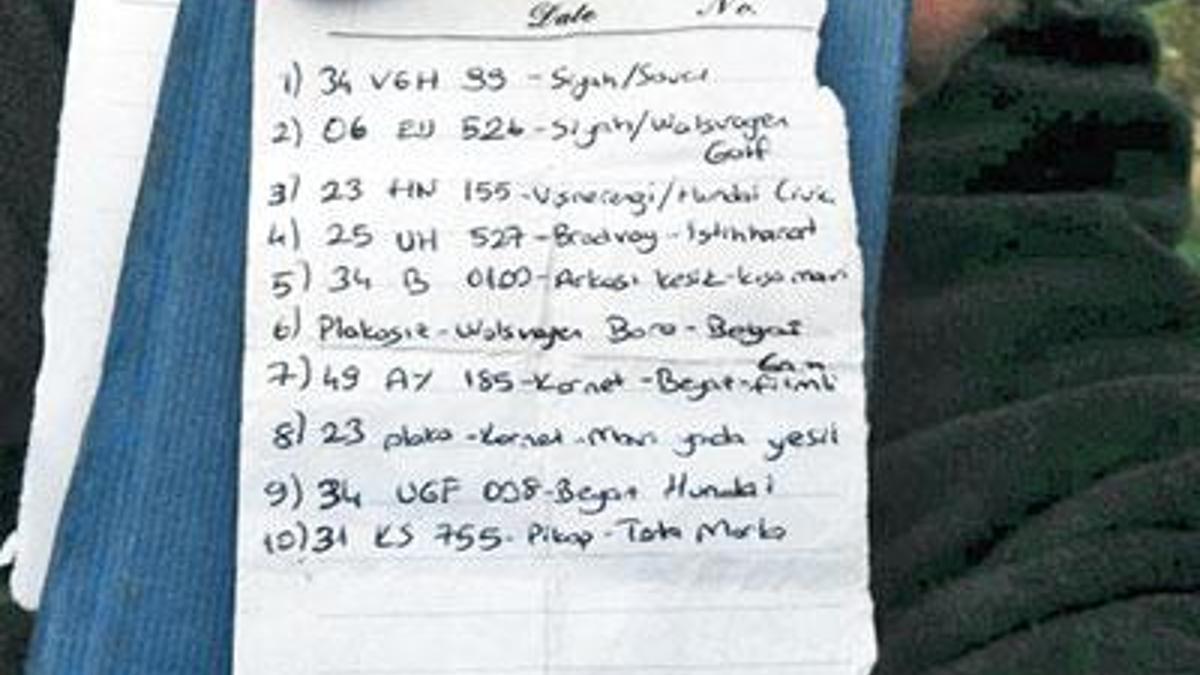 Date No.
1) 34 VGH 99 - Siyah/
2) 06 EU 526 - Siyah/Wolsvagen
Golf
3) 23 HN 155 - /Hundai Civic
4) 25 UH 527 - Brodvay - İstihharat
5) 34 B 0100 - Arkası kesik - kısa mavi
6) Plakasız - Wolsvagen Bora - Beyaz
7) 49 AY 185 - Kornet - Beyaz - filmli
8) 23 plaka - Kornet - Mavi yada yesil
9) 34 UGF 008 - Beyaz Hundai
10) 31 KS 755 - Pikap - Tata Marka